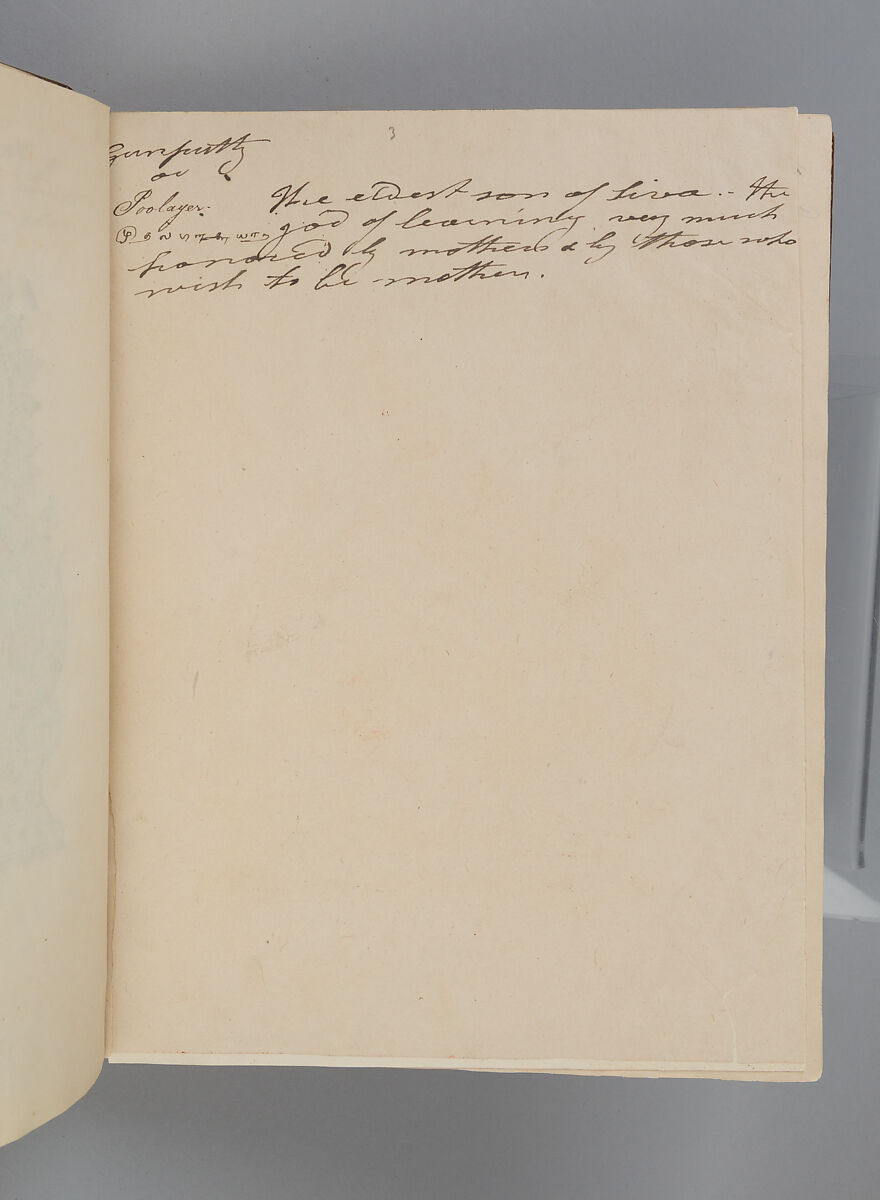 3
Gunputty
or
Poolayer. The eldest son of Siva. - The
god of learning very much
honored by mothers & by those who
wish to be mothers.